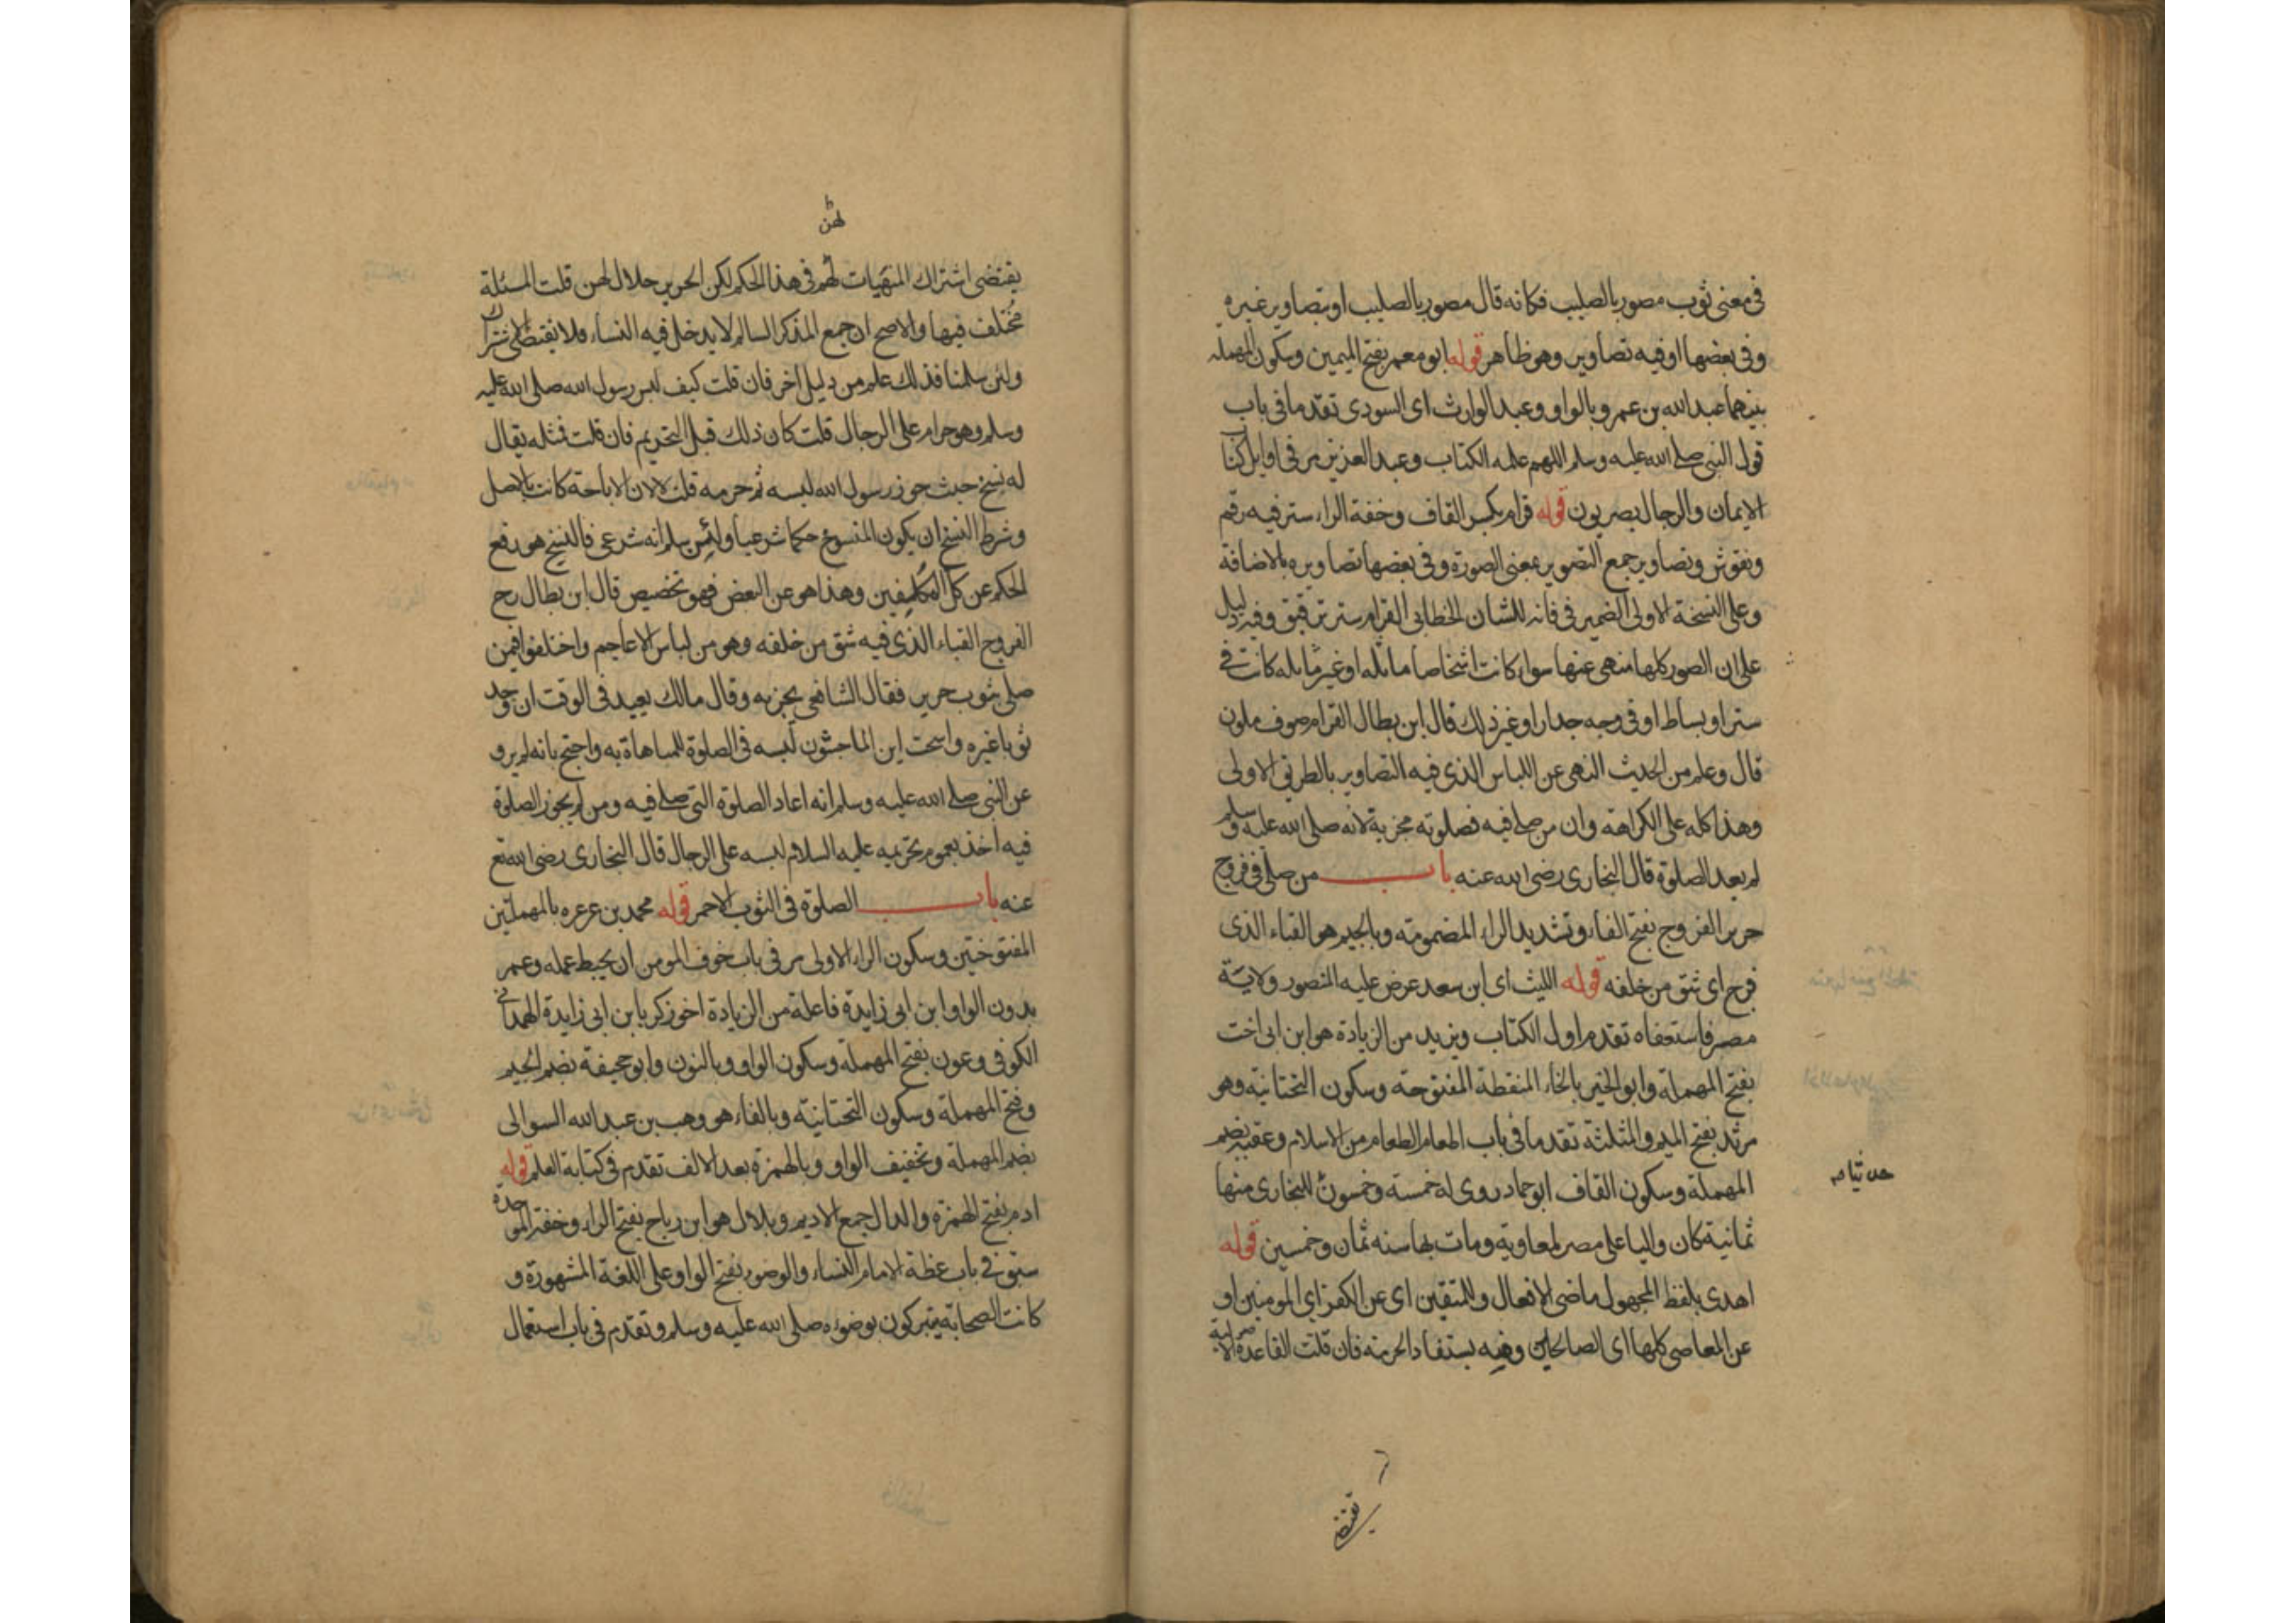 فى معنى ثوب مصور بالصليب فكانه قال مصور بالصليب او بتصاوير غيره
وفى بعضها او فيه تصاوير وهو ظاهر قوله ابو معمر بفتح الميمين وسكون المهملة
بينهما عبد الله بن عمرو بالواو وعبد الوارث اى السودى تقدما فى باب
قول النبى صلى الله عليه وسلم اللهم علمه الكتاب وعبد العزيز مر فى اوايل كتاب
الايمان والرجال بصريون قوله قرام بكسر القاف وخفة الراء ستر فيه رقم
ونقوش وتصاوير جمع التصوير بمعنى الصورة وفى بعضها تصاويره بالاضافة
وعلى النسخة الاولى الضمير فى فانه للشان الخطابى القرام ستر رقيق وفيه دليل
على ان الصور كلها منهى عنها سواء كانت اشخاصا ماثله او غير ماثله كانت فى
ستر او بساط او فى وجه جدار او غير ذلك قال ابن بطال القرام صوف ملون
قال وعلم من الحديث النهى عن اللباس الذى فيه التصاوير بالطريق الاولى
وهذا كله على الكراهة وان من صلى فيه فصلوته مجزية لانه صلى الله عليه وسلم
لم يعد الصلوة قال البخارى رضى الله عنه باب من صلى فى فروج
حرير الفروج بفتح الفاء وتشديد الراء المضمومة وبالجيم هو القباء الذى
فرج اى شق من خلفه قوله الليث اى ابن سعد عرض عليه المنصور ولاية
مصر فاستعفاه تقدم اول الكتاب ويزيد من الزيادة هو ابن ابى اخت
بفتح المهملة وابو الخير بالخاء المنقطة المفتوحة وسكون التحتانية وهو
مرثد بفتح الميم والمثلثة تقدما فى باب اطعام الطعام من الاسلام وعقبة بضم
المهملة وسكون القاف ابو حماد روى له خمسة وخمسون للبخارى منها
ثمانية كان واليا على مصر لمعاوية ومات بها سنه ثمان وخمسين قوله
اهدى بلفظ المجهول ماضى الافعال وللمتقين اى عن الكفر اى المومنين او
عن المعاصى كلها اى الصالحين وفيه يستفاد الحرمة فان قلت القاعدة
لهن
يقتضى اشتراك المنهيات لهم فى هذا الحكم لكن الحرير حلال لهن قلت المسئلة
مختلف فيها والاصح ان جمع المذكر السالم لا يدخل فيه النساء فلا يقتضى الاشتراك
ولئن سلمنا فذلك علم من دليل اخر فان قلت كيف لبس رسول الله صلى الله عليه
وسلم وهو حرام على الرجال قلت كان ذلك قبل التحريم فان قلت فمثله يقال
له نسخ حيث جوز رسول الله لبسه ثم حرمه قلت لا لان الاباحة كانت بالاصل
وشرط النسخ ان يكون المنسوخ حكما شرعيا ولئن سلم انه شرعى فالنسخ هو رفع
الحكم عن كل المكلفين وهذا هو عن البعض فهو تخصيص قال ابن بطال رح
الفروج القباء الذى فيه شق من خلفه وهو من لباس الاعاجم واختلفوا فيمن
صلى بثوب حرير فقال الشافعى يجزيه وقال مالك يعيد فى الوقت ان وجد
ثوبا غيره واستحب ابن الماجشون لبسه فى الصلوة للمباهاة به واحتج بانه لم يرو
عن النبى صلى الله عليه وسلم انه اعاد الصلوة التى صلى فيه ومن لم يجوز الصلوة
فيه اخذ بعموم تحريمه عليه السلام لبسه على الرجال قال البخارى رضى الله تع
عنه باب الصلوة فى الثوب الاحمر قوله محمد بن عرعره بالمهملتين
المفتوحتين وسكون الراء الاولى مر فى باب خوف المومن ان يحبط عمله وعمر
بدون الواو ابن ابى زايدة فاعلة من الزيادة اخو زكريا بن ابى زايدة الهمدانى
الكوفى وعون بفتح المهملة وسكون الواو وبالنون وابو جحيفة بضم الجيم
وفتح المهملة وسكون التحتانية وبالفاء هو وهب بن عبد الله السوالى
بضم المهملة وتخفيف الواو وبالهمزة بعد الالف تقدم فى كتابة العلم قوله
ادم بفتح الهمزة والدال جمع الاديم وبلال هو ابن رباح بفتح الراء وخفة الموحدة
سبق فى باب عظة الامام النساء والوضوء بفتح الواو على اللغة المشهورة و
كانت الصحابة يتبركون بوضوءه صلى الله عليه وسلم وتقدم فى باب استعمال